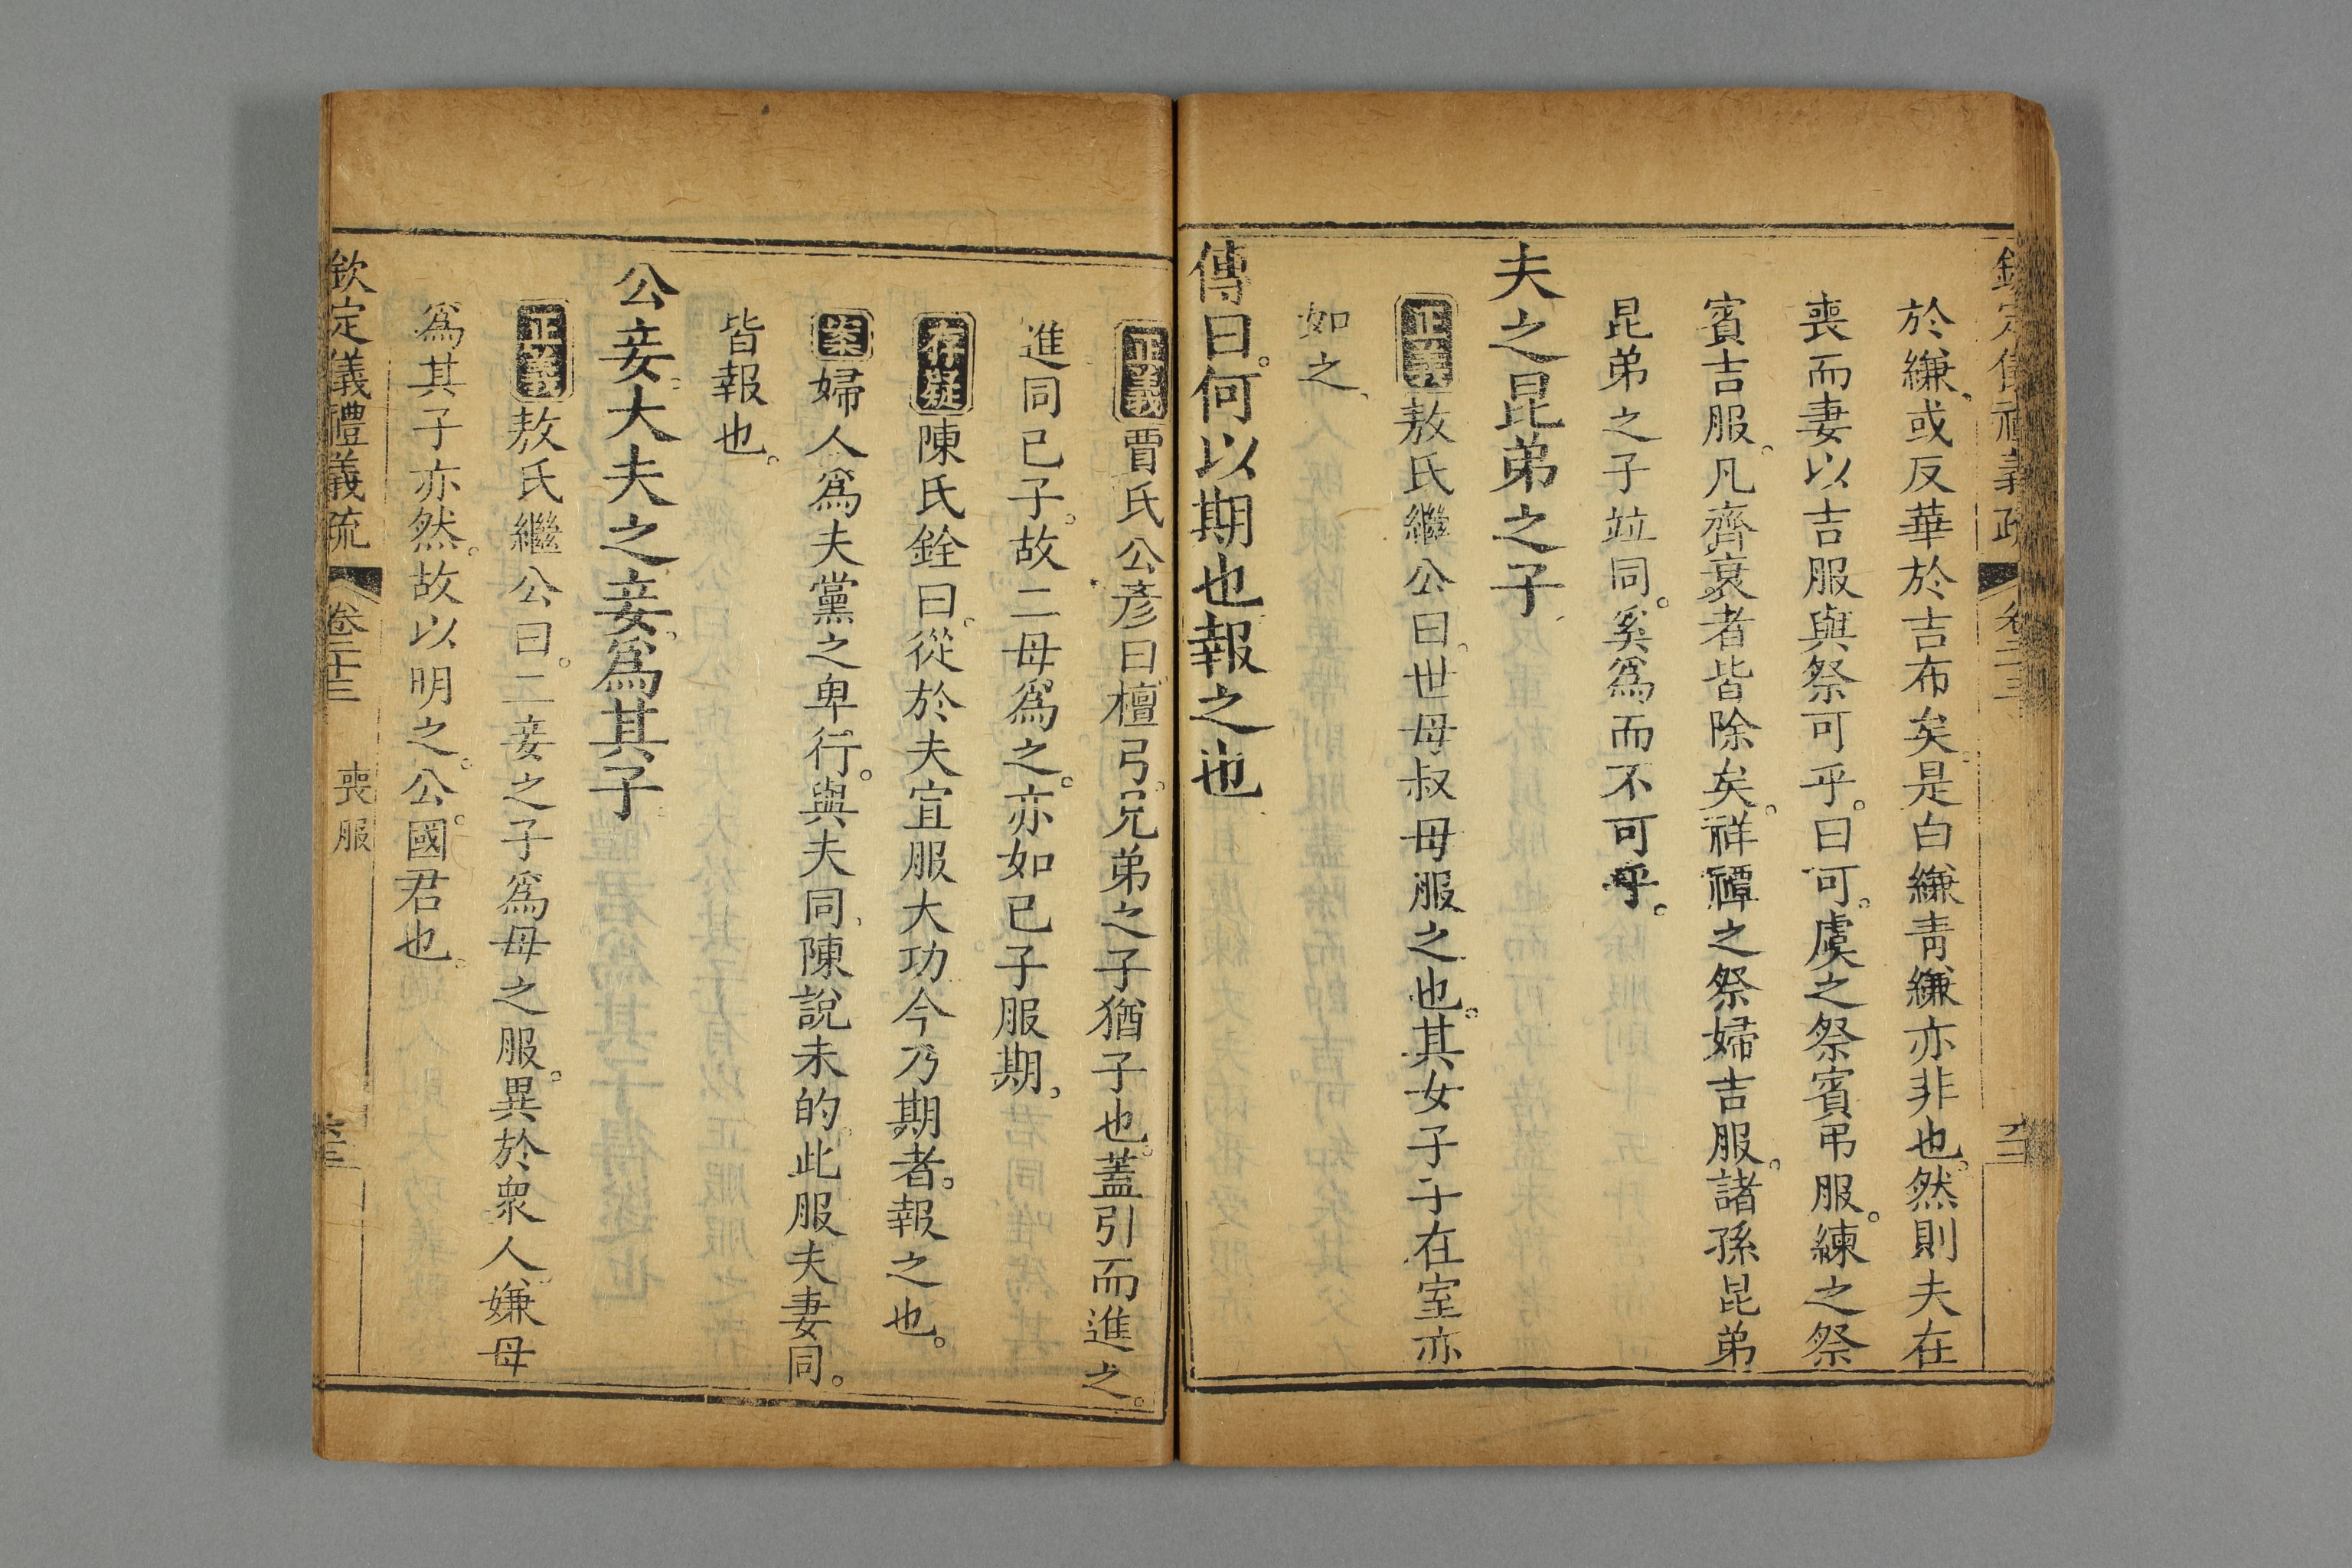 於縑、或反華於吉布矣。是白縑青縑亦非也。然則夫在
喪而妻以吉服與祭可乎。曰可。虞之祭賓弔服。練之祭
賓吉服。凡齊衰者皆除矣。祥禫之祭婦吉服。諸孫昆弟
昆弟之子竝同。奚爲而不可乎。
夫之昆弟之子
正義敖氏繼公曰。世母叔母服之也。其女子子在室亦
如之、
傳曰。何以期也報之也
正義賈氏公彥曰檀弓。兄弟之子猶子也。蓋引而進之。
進同己子。故二母爲之。亦如己子服期、
存疑陳氏銓曰。從於夫宜服大功今乃期者。報之也。
案婦人爲夫黨之卑行。與夫同、陳說未的。此服夫妻同。
皆報也。
公妾。大夫之妾、爲其子
正義敖氏繼公曰。二妾之子爲母之服。異於衆人、嫌母
爲其子亦然。故以明之。公。國君也。
欽定儀禮義疏 卷二十三 喪服